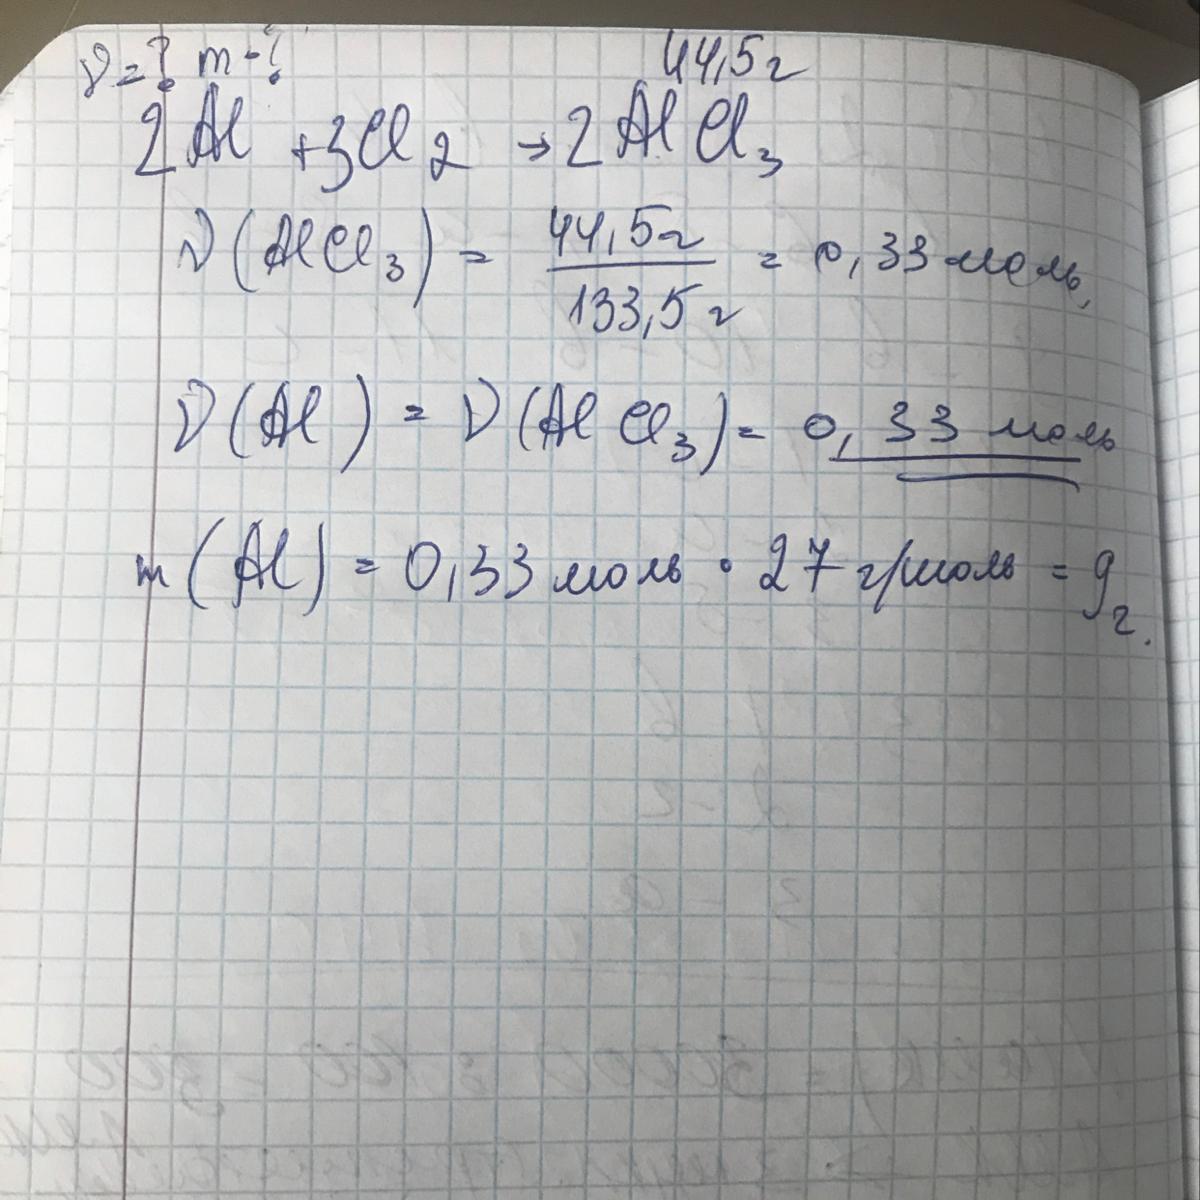 ν=? m-?
44,5г
2Al +3Cl2 → 2AlCl3
ν(AlCl3) = 44,5г / 133,5г = 0,33 моль,
ν(Al) = ν(AlCl3) = 0,33 моль
m(Al) = 0,33 моль · 27 г/моль = 9г.